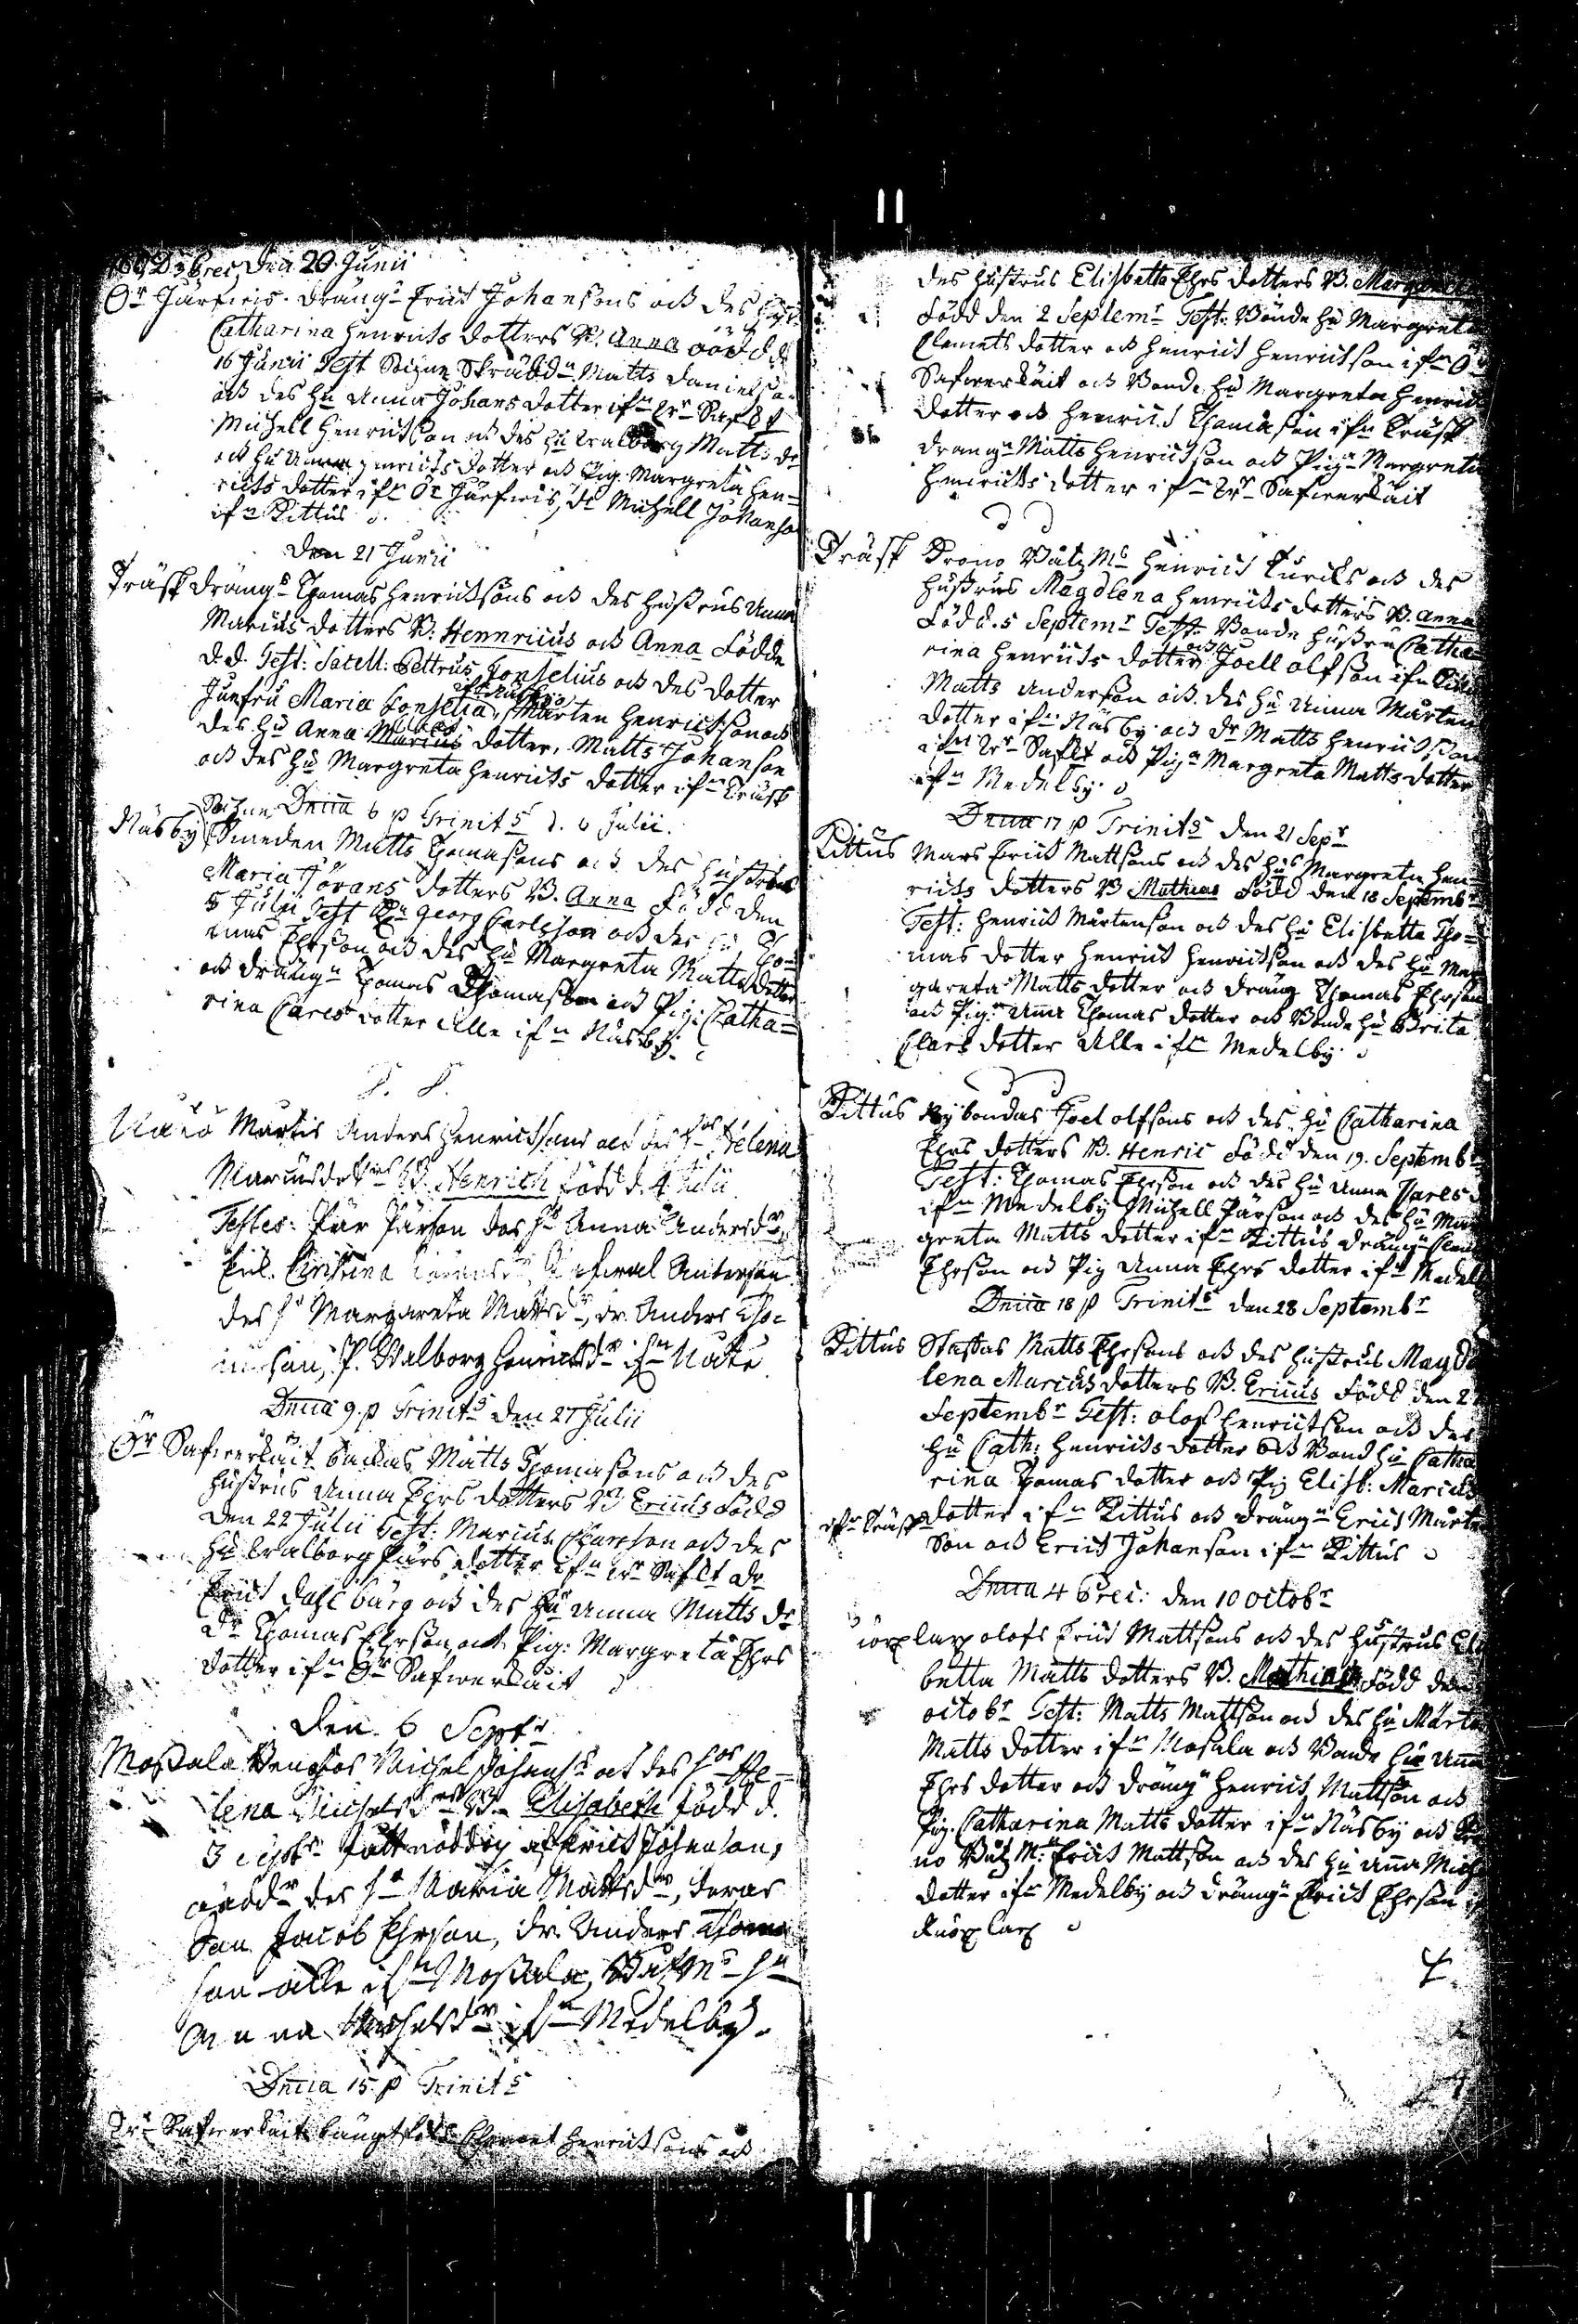 Den 20 Junii
Ör Järfwis. Drängs Erich Johansons och des hust.
Catharina Henrichs dotters B. Anna född d.
16 Junii Test Sochne Skrädd. Matts Danielson
och des hu Anna Johans dotter ifn Yr Saf
Michell Henrichson och des hu Walborg Matts dr
och hu Anna Henrichs dotter och Pig. Margreta Hen=
richs dotter ifn Ör Järfwis, Dr Michell Johanson
ifn Kittus
Den 21 Junii
Träsk Drängs Thomas Henrichsons och des hustrus Anna
Marcus dotters B: Hennricus och Anna Födde
d. d. Test: Satell: Pettrus Gonselius och des dotter
Junfru Maria Gonselia, Mårten Henrichson och
des hu Anna dotter, Matts Johanson
och des hu Margreta Henrichs dotter ifn Träsk
Dnica 6 p Trinits d. 6 Julii.
Näsby Smeden Matts Thomasons och des hustrus
Maria Jörans dotters B. Anna Född den
5 Julii Test Georg Carlsson och des hu Tho=
mas Ehrson och des hu Margreta Matts dotter
och drängn Thomas Thomason och Pig: Catha=
rina Clares dotter Alle ifn Näsby.
D. D.
Martis Anders Henrichsons och des hos Helena
Marcusdotters B. Henrich född d. 4 Julii
Testes: Pär Pärson des hu Anna Andersdr,
Pil. Christina Anderson
des hu Margareta Mattsdr, dr. Anders Tho=
mason, P. Walborg Henrichsdr ifn
Dnica 9. p Trinits den 27 Julii
Ör Safwerkeit backas Matts Thomasons och des
hustrus Anna Ehrs dotters B Ericus Född
den 22 Julii Test: Marcus Clareson och des
hu Walborg Pärs dotter ifn Yr Safkt Dr
Erich Dahlbärg och des hu Anna Matts dr
Dr Thomas Ehrson och Pig: Margreta Ehrs
dotter ifn Ör Safwerkeit
Den 6 Septr
Mossala Bengtos Michel Johans och des hos He=
lena Michelsd B. Elisabeth född d.
3 Septr Erich Johanson,
des hu Maria Mattsdr, deras
Son Jacob Ehrson, dr. Anders Thoma
son alle ifn Mossala, Båtzms hu
Anna Michelsdr ifn Medelby.
Dnica 15 p Trinits
Yr Safwerkeit Längtfals Clemet Henrichsons och
des hustrus Elisbetta Ehrs dotters B. Margreta
Född den 2 Septemr Test: Bonde hu Margreta
Clemets dotter och Henrich Henrichson ifn Ör
Safwerkeit och Bonde hu Margreta Henrichs
dotter och Henrich Thomason ifn Träsk
drängn Matts Henrichson och Pign Margreta
Henrichs dotter ifn Yr Safwerkeit
D D
Träsk Krono Båtz Ms Henrich Turcks och des
hustrus Magdlena Henrichs dotters B. Anna
Född. 5 Septemr Test: Bonde hustru Catha=
rina Henrichs dotter och Joell olfson ifn
Matts Anderson och des hu Anna Mårtens
dotter ifn Näsby och dr Matts Henrichson
ifn Yr Safkt och Pign Margreta Matts dotter
ifn Medelby
Dnica 17 p Trinits den 21 Sepr
Kittus Mars Erich Mattsons och des hus Margreta Hen=
richs dotters B Mathias Född den 18 Septembr
Test: Henrich Mårtenson och des hu Elisbetta Tho=
mas dotter Henrich Henrichson och des hu Mar
gareta Matts dotter och dräng Thomas Ehrson
och Pign Anna Thomas dotter och Bonde hu Brita
Clars dotter Alle ifn Medelby
D D
Kittus Nybondas Joel olfsons och des hu Catharina
Ehrs dotters B. Henric Född den 19. Septembr
Test: Thomas Ehrson och des hu Anna Clares d
ifn Medelby Michell Pärson och des hu Mar
greta Matts dotter ifn Kittus drängn Clem
Ehrson och Pig Anna Ehrs dotter ifn Medelby
Dnica 18 p Trinits den 28 Septembr
Kittus Staffas Matts Ehrsons och des hustrus Magda
lena Marcus dotters B. Ericus Född den 2
Septembr Test: olof Henrichson och des
hu Cath: Henrichs dotter och Bond hu Catha
rina Thomas dotter och Pig Elisb: Marcus
dotter ifn Kittus och drängn Erich Mårten
ifn Träsk
Son och Erich Johanson ifn Kittus
Dnica 4 Brei: den 10 octobr
iörplax olofs Erich Mattsons och des hustrus Elis
betta Matts dotters B. Mathias Född den
octobr Test: Matts Mattson och des hu Märta
Matts dotter ifn Mosala och Bonde hu Anna
Ehrs dotter och drängn Henrich Mattson och
Pig. Catharina Matts dotter ifn Näsby och Kro
no Båtz Ms Erich Mattson och des hu Anna Mich
dotter ifn Medelby och drängn Erich Ehrson if
Kiörplax